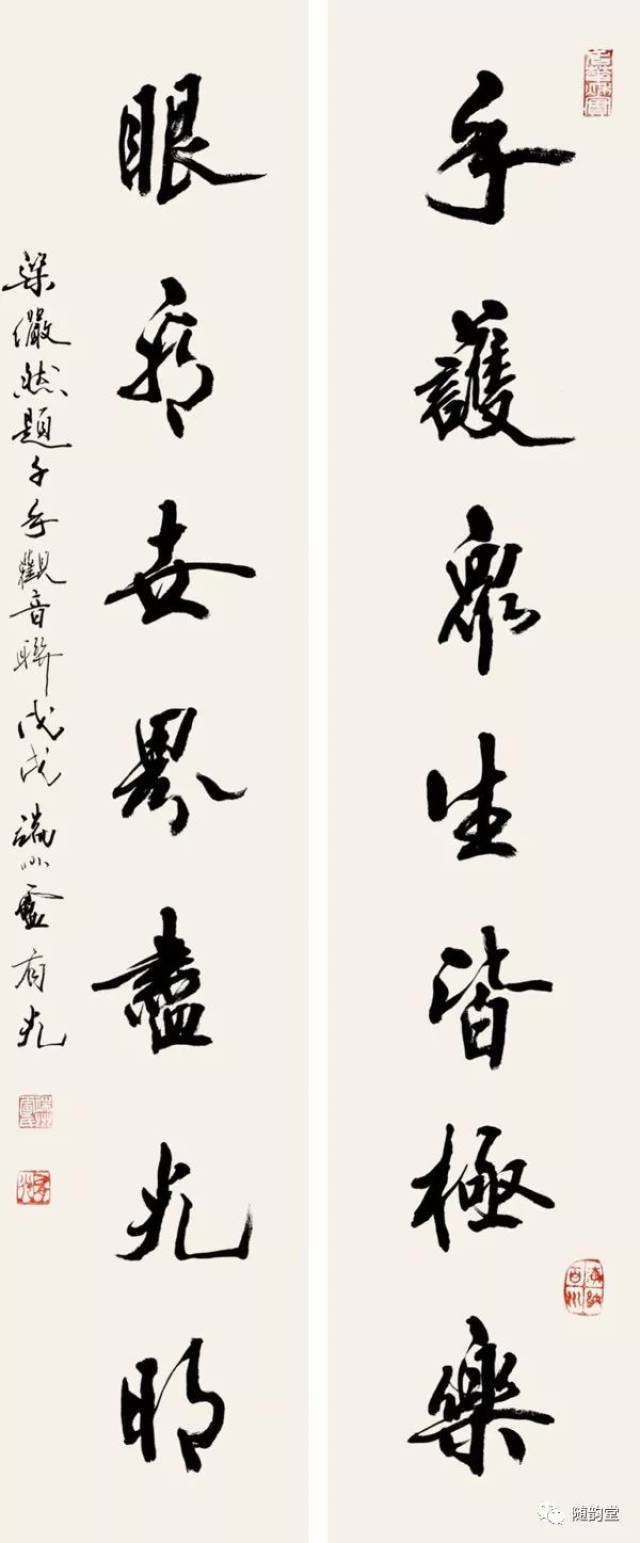 手護衆生皆極樂
眼觀世界盡光明
梁儼然題千手觀音聯戊戌端州靈有光
随韵堂